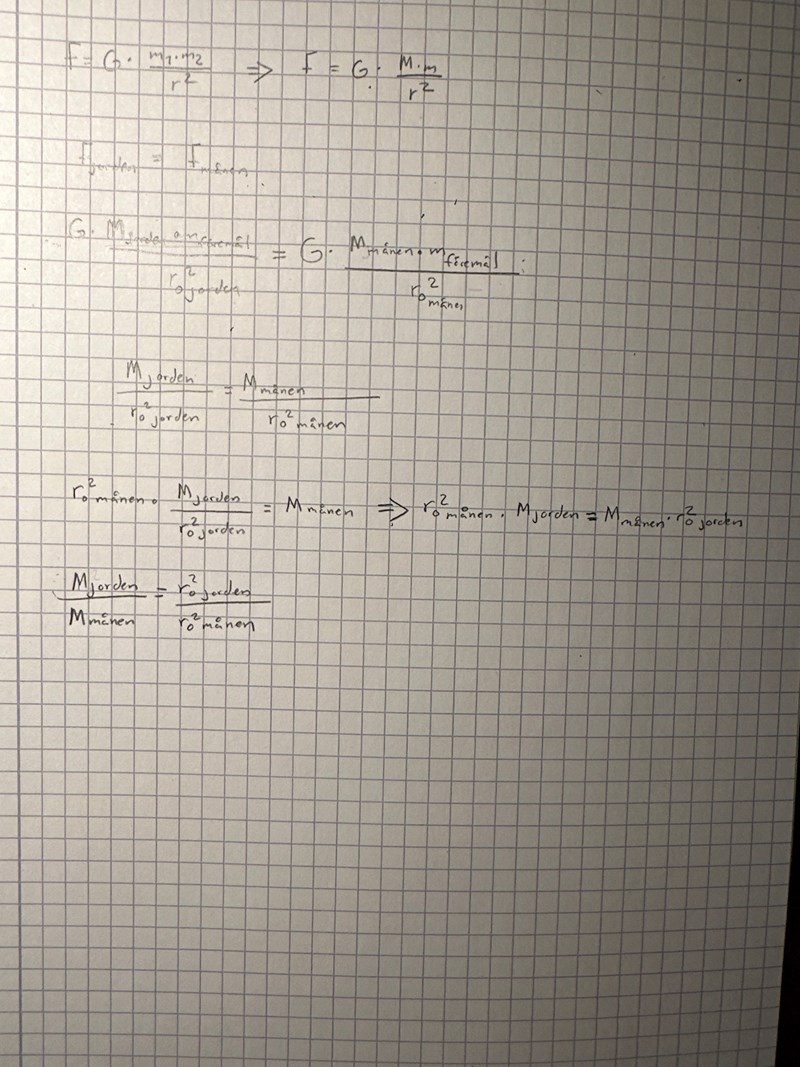 F = G · m₁·m₂/r² ⇒ F = G · M·m/r²
F_jorden = F_månen
G · M_jorden · m_föremål / r₀²_jorden = G · M_månen · m_föremål / r₀²_månen
M_jorden / r₀²_jorden = M_månen / r₀²_månen
r₀²_månen · M_jorden / r₀²_jorden = M_månen ⇒ r₀²_månen · M_jorden = M_månen · r₀²_jorden
M_jorden / M_månen = r₀²_jorden / r₀²_månen